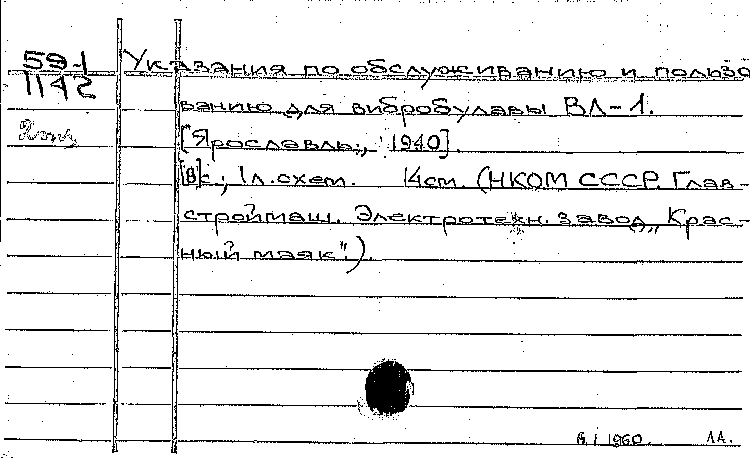 591
1142
2 экз
Указания по обслуживанию и пользо
ванию для вибробулавы ВЛ-1.
[Ярославль, 1940].
[8]с.; 1л.схем. 14см. (НКОМ СССР. Глав-
строймаш. Электротехн. завод „Крас-
ный маяк".).
1960. 1А.